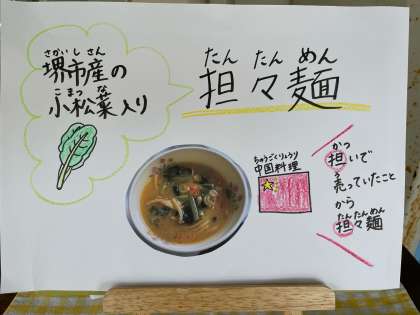 さかいしさん
堺市産の
こまつな
小松菜入り
たんたんめん
担々麺
ちゅうごくりょうり
中国料理
かつ
担いで
売っていたこと
から
たんたんめん
担々麺